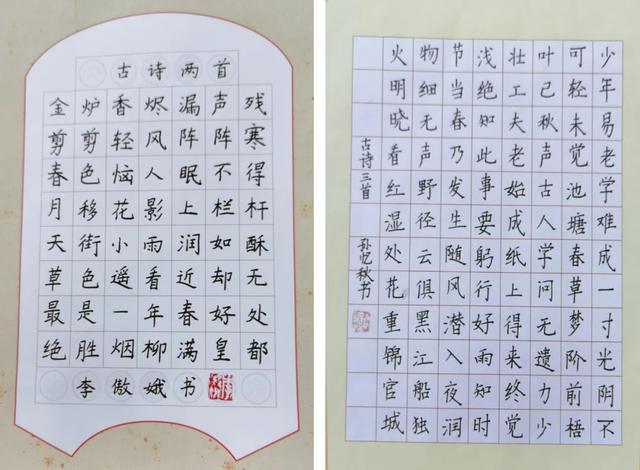 古诗两首
金炉香烬漏声残
剪剪轻风阵阵寒
春色恼人眠不得
月移花影上栏杆
天街小雨润如酥
草色遥看近却无
最是一年春好处
绝胜烟柳满皇都
李傲娥书
少年易老学难成一寸光阴不
可轻未觉池塘春草梦阶前梧
叶已秋声古人学问无遗力少
壮工夫老始成纸上得来终觉
浅绝知此事要躬行好雨知时
节当春乃发生随风潜入夜润
物细无声野径云俱黑江船独
火明晓看红湿处花重锦官城
古诗三首 孙忆秋书